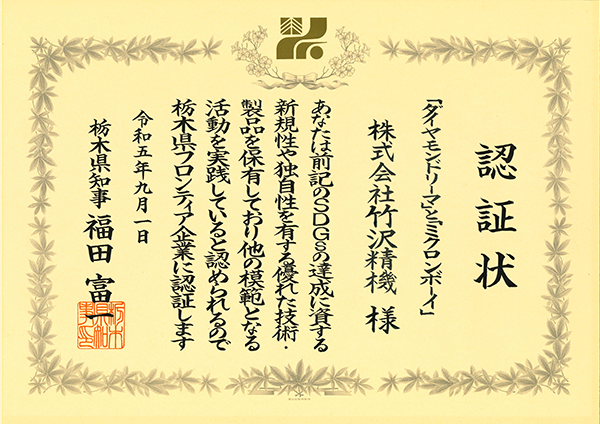 認証状
「ダイヤモンドリーマ」と「ミクロンボーイ」
株式会社竹沢精機 様
あなたは前記のSDGsの達成に資する
新規性や独自性を有する優れた技術・
製品を保有しており他の模範となる
活動を実践していると認められるので
栃木県フロンティア企業に認証します
令和五年九月一日
栃木県知事 福田富一